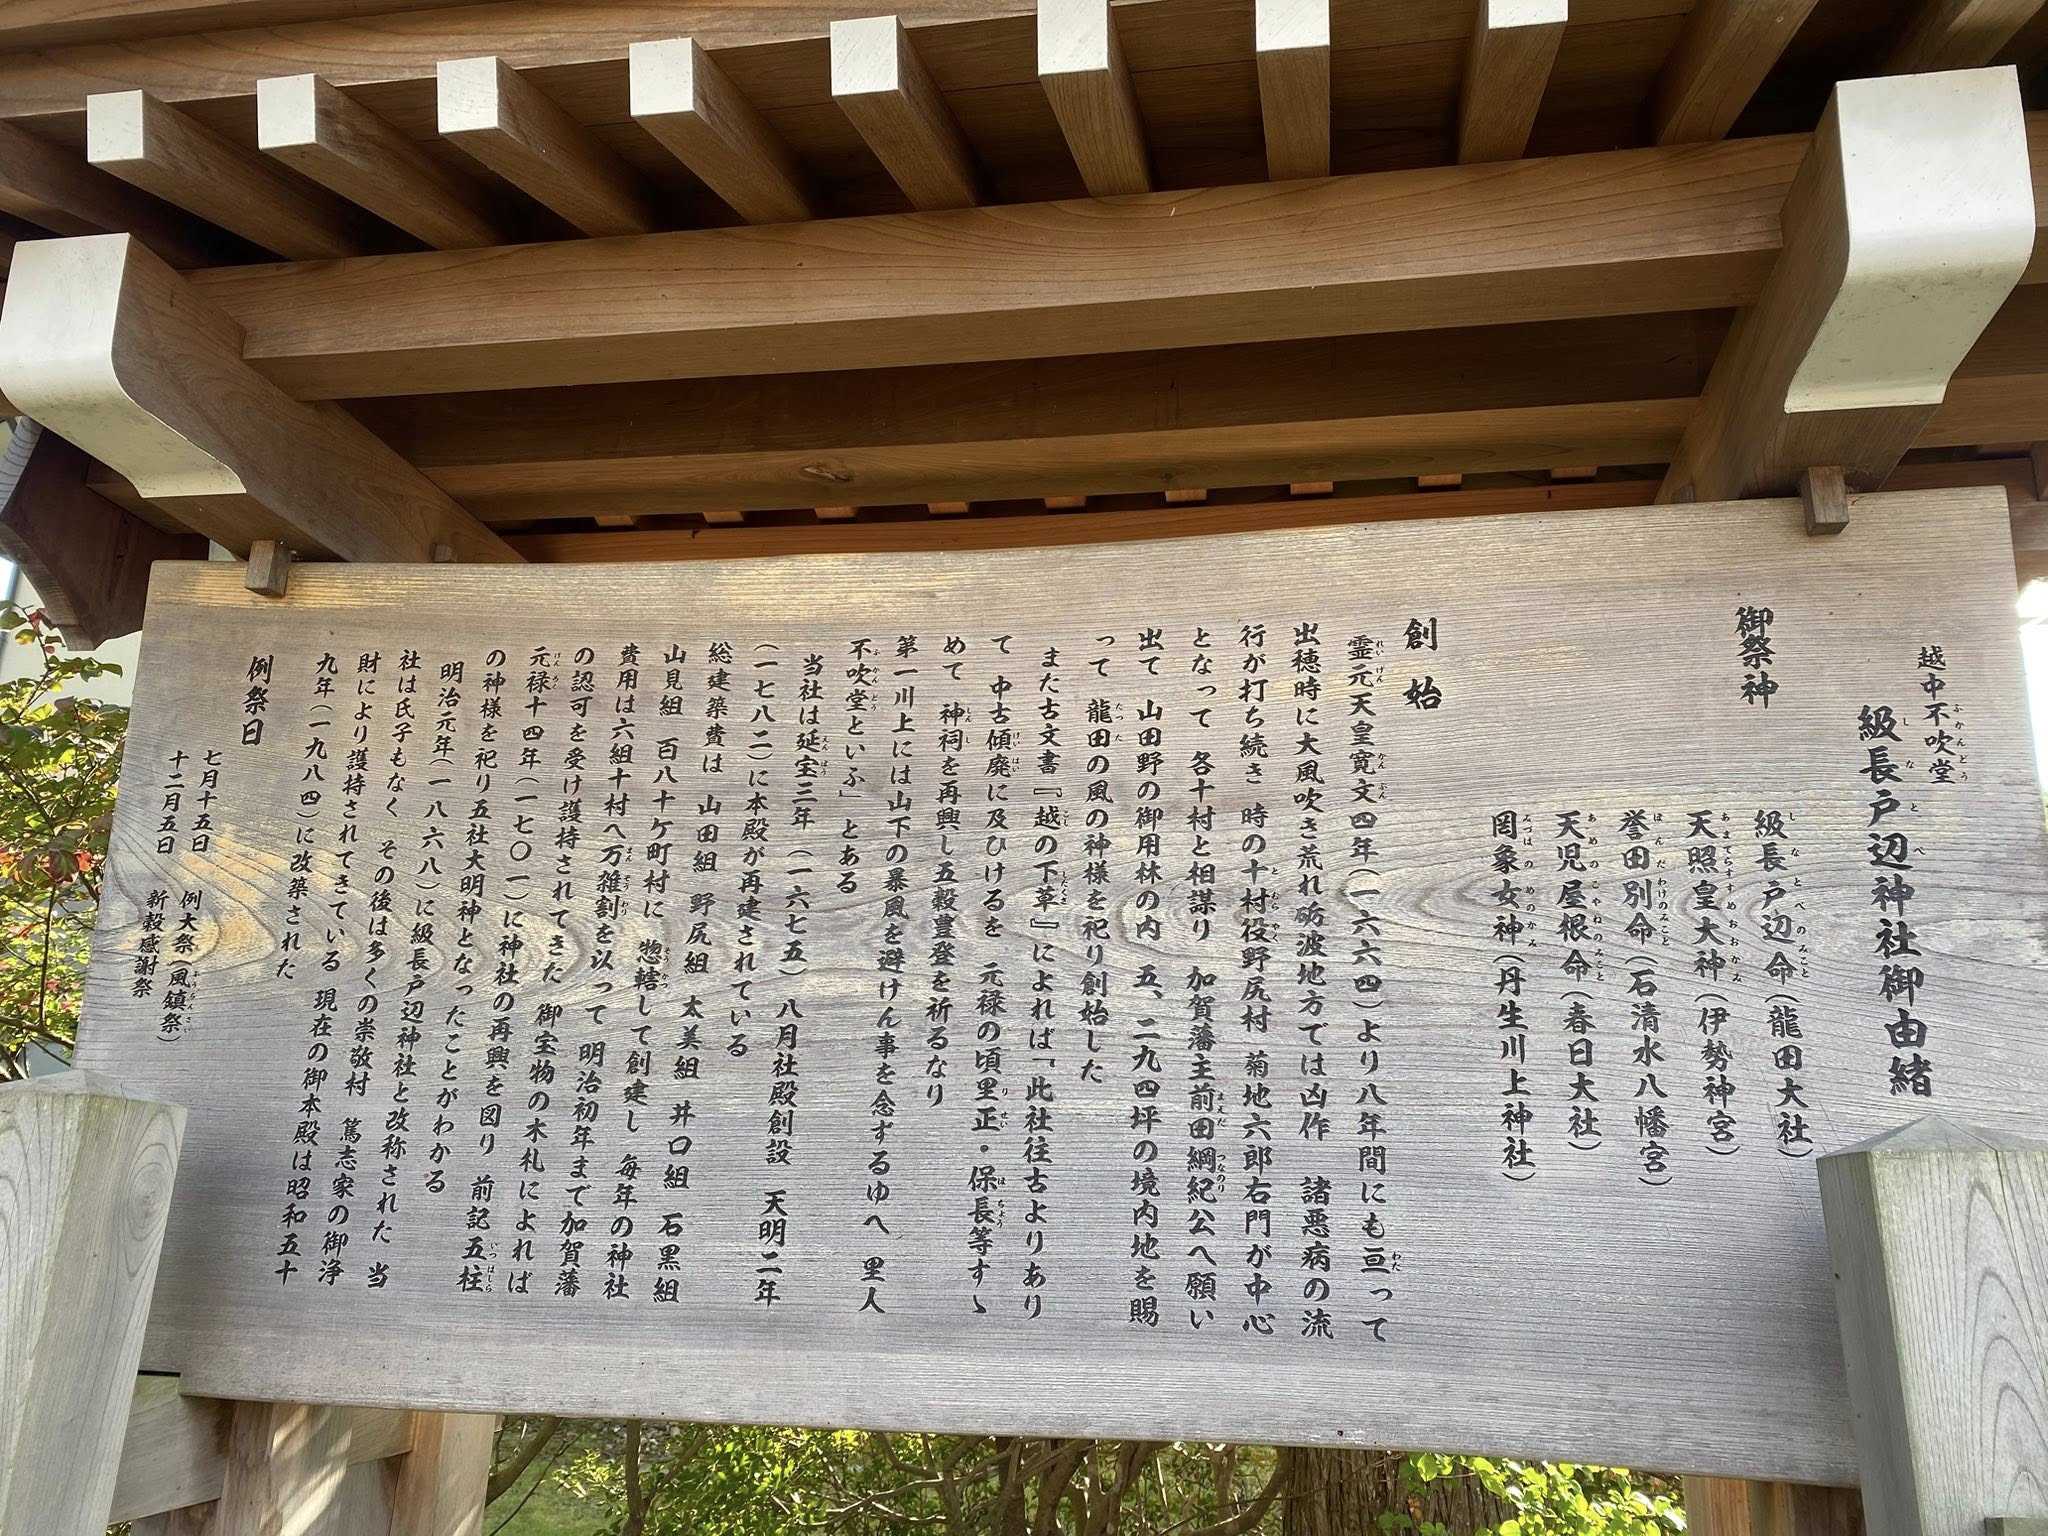 越中不吹堂
級長戸辺神社御由緒
御祭神
級長戸辺命(龍田大社)
天照皇大神(伊勢神宮)
誉田別命(石清水八幡宮)
天児屋根命(春日大社)
罔象女神(丹生川上神社)
創始
霊元天皇寛文四年(一六六四)より八年間にも亘って
出穂時に大風吹き荒れ砺波地方では凶作 諸悪病の流
行が打ち続き 時の十村役野尻村 菊地六郎右門が中心
となって 各十村と相謀り 加賀藩主前田綱紀公へ願い
出て 山田野の御用林の内 五、二九四坪の境内地を賜
って 龍田の風の神様を祀り創始した
また古文書『越の下草』によれば「此社往古よりあり
て 中古傾廃に及ひけるを 元禄の頃里正・保長等すゝ
めて 神祠を再興し五穀豊登を祈るなり
第一川上には山下の暴風を避けん事を念ずるゆへ 里人
不吹堂といふ」とある
当社は延宝三年 (一六七五)八月社殿創設 天明二年
(一七八二)に本殿が再建されている
総建築費は 山田組 野尻組 太美組 井口組 石黒組
山見組 百八十ケ町村に 惣轄して創建し 毎年の神社
費用は六組十村へ万雑割を以って 明治初年まで加賀藩
の認可を受け護持されてきた 御宝物の木札によれば
元禄十四年(一七〇一)に神社の再興を図り 前記五柱
の神様を祀り五社大明神となったことがわかる
明治元年(一八六八)に級長戸辺神社と改称された 当
社は氏子もなく その後は多くの崇敬村 篤志家の御浄
財により護持されてきている 現在の御本殿は昭和五十
九年(一九八四)に改築された
例祭日
七月十五日 例大祭(風鎮祭)
十二月五日 新穀感謝祭